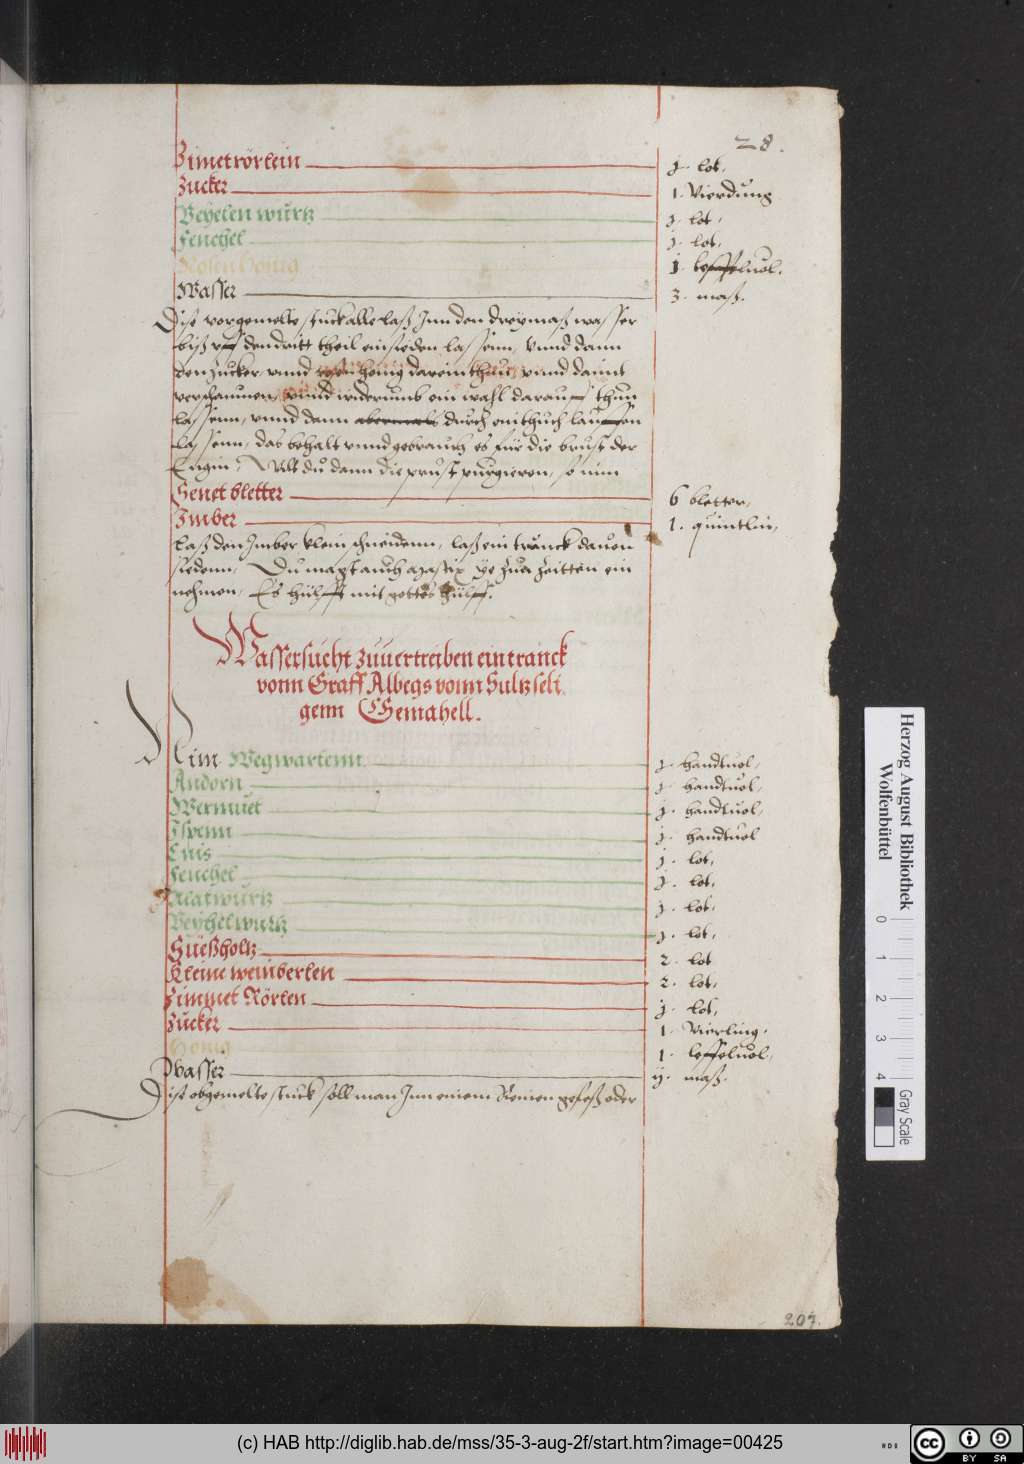 28.
Zimetrörlein 1. lot.
Zucker 1. Vierdung
Veyelen wurtz 1. lot.
Fenchel 1. lot.
Rosen Honig 1. leffeluol.
Wasser 3. maß.
Dise vorgemelte stuck alle laß Jnn den drey maß wasser
biß vff den dritt theil einsieden lassenn, vnnd dann
den Zucker vnnd rosen honig darein thun, vnnd damit
verschaumen, vnnd widerumb ein wahl darauff thun
lassenn, vnnd dann durch ein thuch lauffen
lassenn, das behalt vnnd gebrauch es für die brust der
Engin, Wilt du dann die prust purgieren, so nim
Senet bletter 6 bletter,
Imber 1. quintlin,
Laß den Jmber klein schneidenn, laß ein tranck dauon
siedenn, Du magst auch ye zua Zeitten ein
nehmen, Es hülfft mit gottes hülff.
Wassersucht zuuertreiben ein tranck
vonn Graff Albegs vonn Sultz seli
genn Gemahell.
Nim Wegwartenn 1. handtuol,
Andorn 1. handtuol,
Wermuet 1. handtuol,
Jspenn 1. handtuol
Enis 1. lot,
Fenchel 1. lot,
Alatwurtz 1. lot,
Veyhelwurtz 1. lot,
Süeßholtz 2. lot
Kleine weinberlen 2. lot,
Zimmet Rörlen 1. lot,
Zucker 1. Vierling.
Honig 1. leffeluol,
Wasser ij. maß.
Dise obgemelte stuck soll man Jnn einem Reinen gefeß oder
207.
Herzog August Bibliothek
Wolfenbüttel
0 1 2 3 4
Gray Scale
(c) HAB http://diglib.hab.de/mss/35-3-aug-2f/start.htm?image=00425
cc BY SA